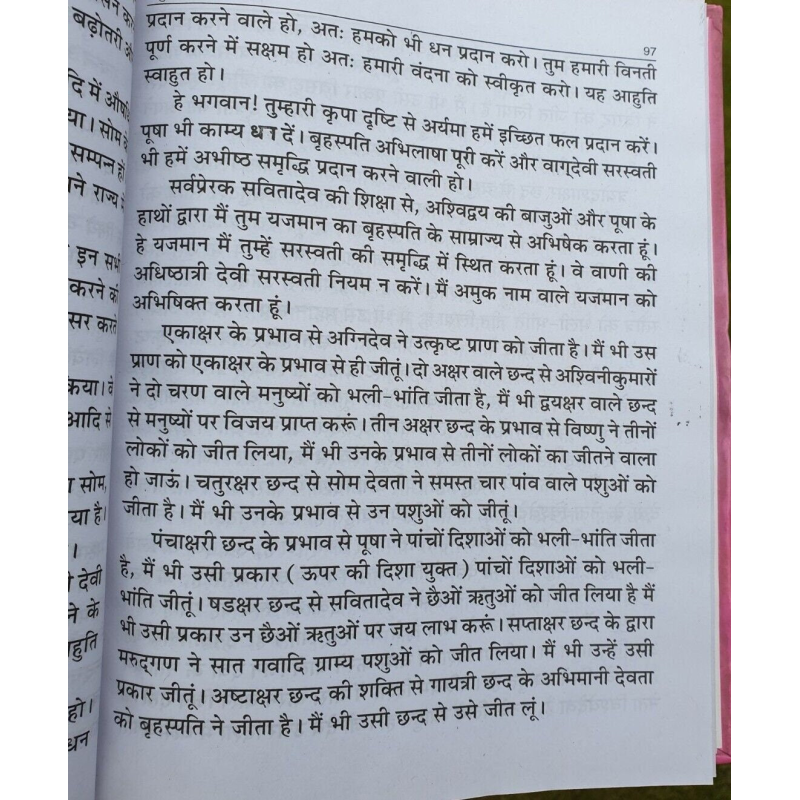 सन का
बढ़ोतरी औ
दि में औषधि
या। सोम वे
सम्पन्न हो
ाने राज्य में
इन सभी
करने की
सर करते
कया। वे
आदि से
ा सोम,
या है।
।
ो देवी
ने के
ाहुति
हो।
धन
97
प्रदान करने वाले हो, अतः हमको भी धन प्रदान करो। तुम हमारी विनती
पूर्ण करने में सक्षम हो अतः हमारी वंदना को स्वीकृत करो। यह आहुति
स्वाहुत हो।
हे भगवान! तुम्हारी कृपा दृष्टि से अर्यमा हमें इच्छित फल प्रदान करें।
पूषा भी काम्य धन दें। बृहस्पति अभिलाषा पूरी करें और वाग्देवी सरस्वती
भी हमें अभीष्ठ समृद्धि प्रदान करने वाली हो।
सर्वप्रेरक सवितादेव की शिक्षा से, अश्विद्वय की बाजुओं और पूषा के
हाथों द्वारा में तुम यजमान का बृहस्पति के साम्राज्य से अभिषेक करता हूं।
हे यजमान मैं तुम्हें सरस्वती की समृद्धि में स्थित करता हूं। वे वाणी की
अधिष्ठात्री देवी सरस्वती नियम न करें। मैं अमुक नाम वाले यजमान को
अभिषिक्त करता हूं।
एकाक्षर के प्रभाव से अग्निदेव ने उत्कृष्ट प्राण को जीता है। मैं भी उस
प्राण को एकाक्षर के प्रभाव से ही जीतूं। दो अक्षर वाले छन्द से अश्विनीकुमारों
ने दो चरण वाले मनुष्यों को भली-भांति जीता है, मैं भी द्वयक्षर वाले छन्द
से मनुष्यों पर विजय प्राप्त करूं। तीन अक्षर छन्द के प्रभाव से विष्णु ने तीनों
लोकों को जीत लिया, मैं भी उनके प्रभाव से तीनों लोकों का जीतने वाला
हो जाऊं। चतुरक्षर छन्द से सोम देवता ने समस्त चार पांव वाले पशुओं को
जीता है। मैं भी उनके प्रभाव से उन पशुओं को जीतूं।
पंचाक्षरी छन्द के प्रभाव से पूषा ने पांचों दिशाओं को भली-भांति जीता
है, मैं भी उसी प्रकार ( ऊपर की दिशा युक्त ) पांचों दिशाओं को भली-
भांति जीतूं। षडक्षर छन्द से सवितादेव ने छैओं ऋतुओं को जीत लिया है मैं
भी उसी प्रकार उन छैओं ऋतुओं पर जय लाभ करूं। सप्ताक्षर छन्द के द्वारा
मरुद्गण ने सात गवादि ग्राम्य पशुओं को जीत लिया। मैं भी उन्हें उसी
प्रकार जीतूं। अष्टाक्षर छन्द की शक्ति से गायत्री छन्द के अभिमानी देवता
को बृहस्पति ने जीता है। मैं भी उसी छन्द से उसे जीत लूं।